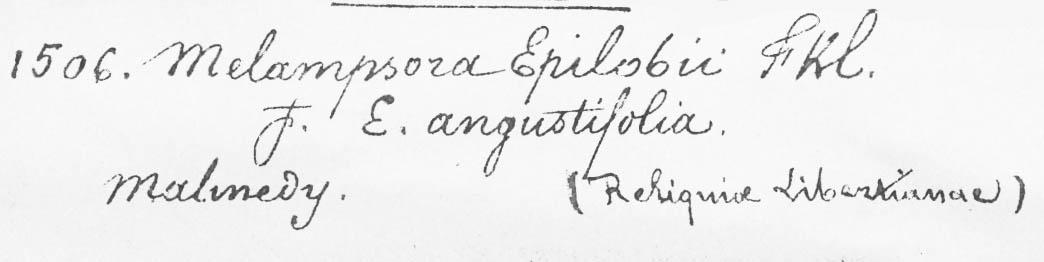 1506. Melampsora Epilobii Fkl.
f. E. angustifolia.
Malmedy. (Reliquiæ Libertianae)